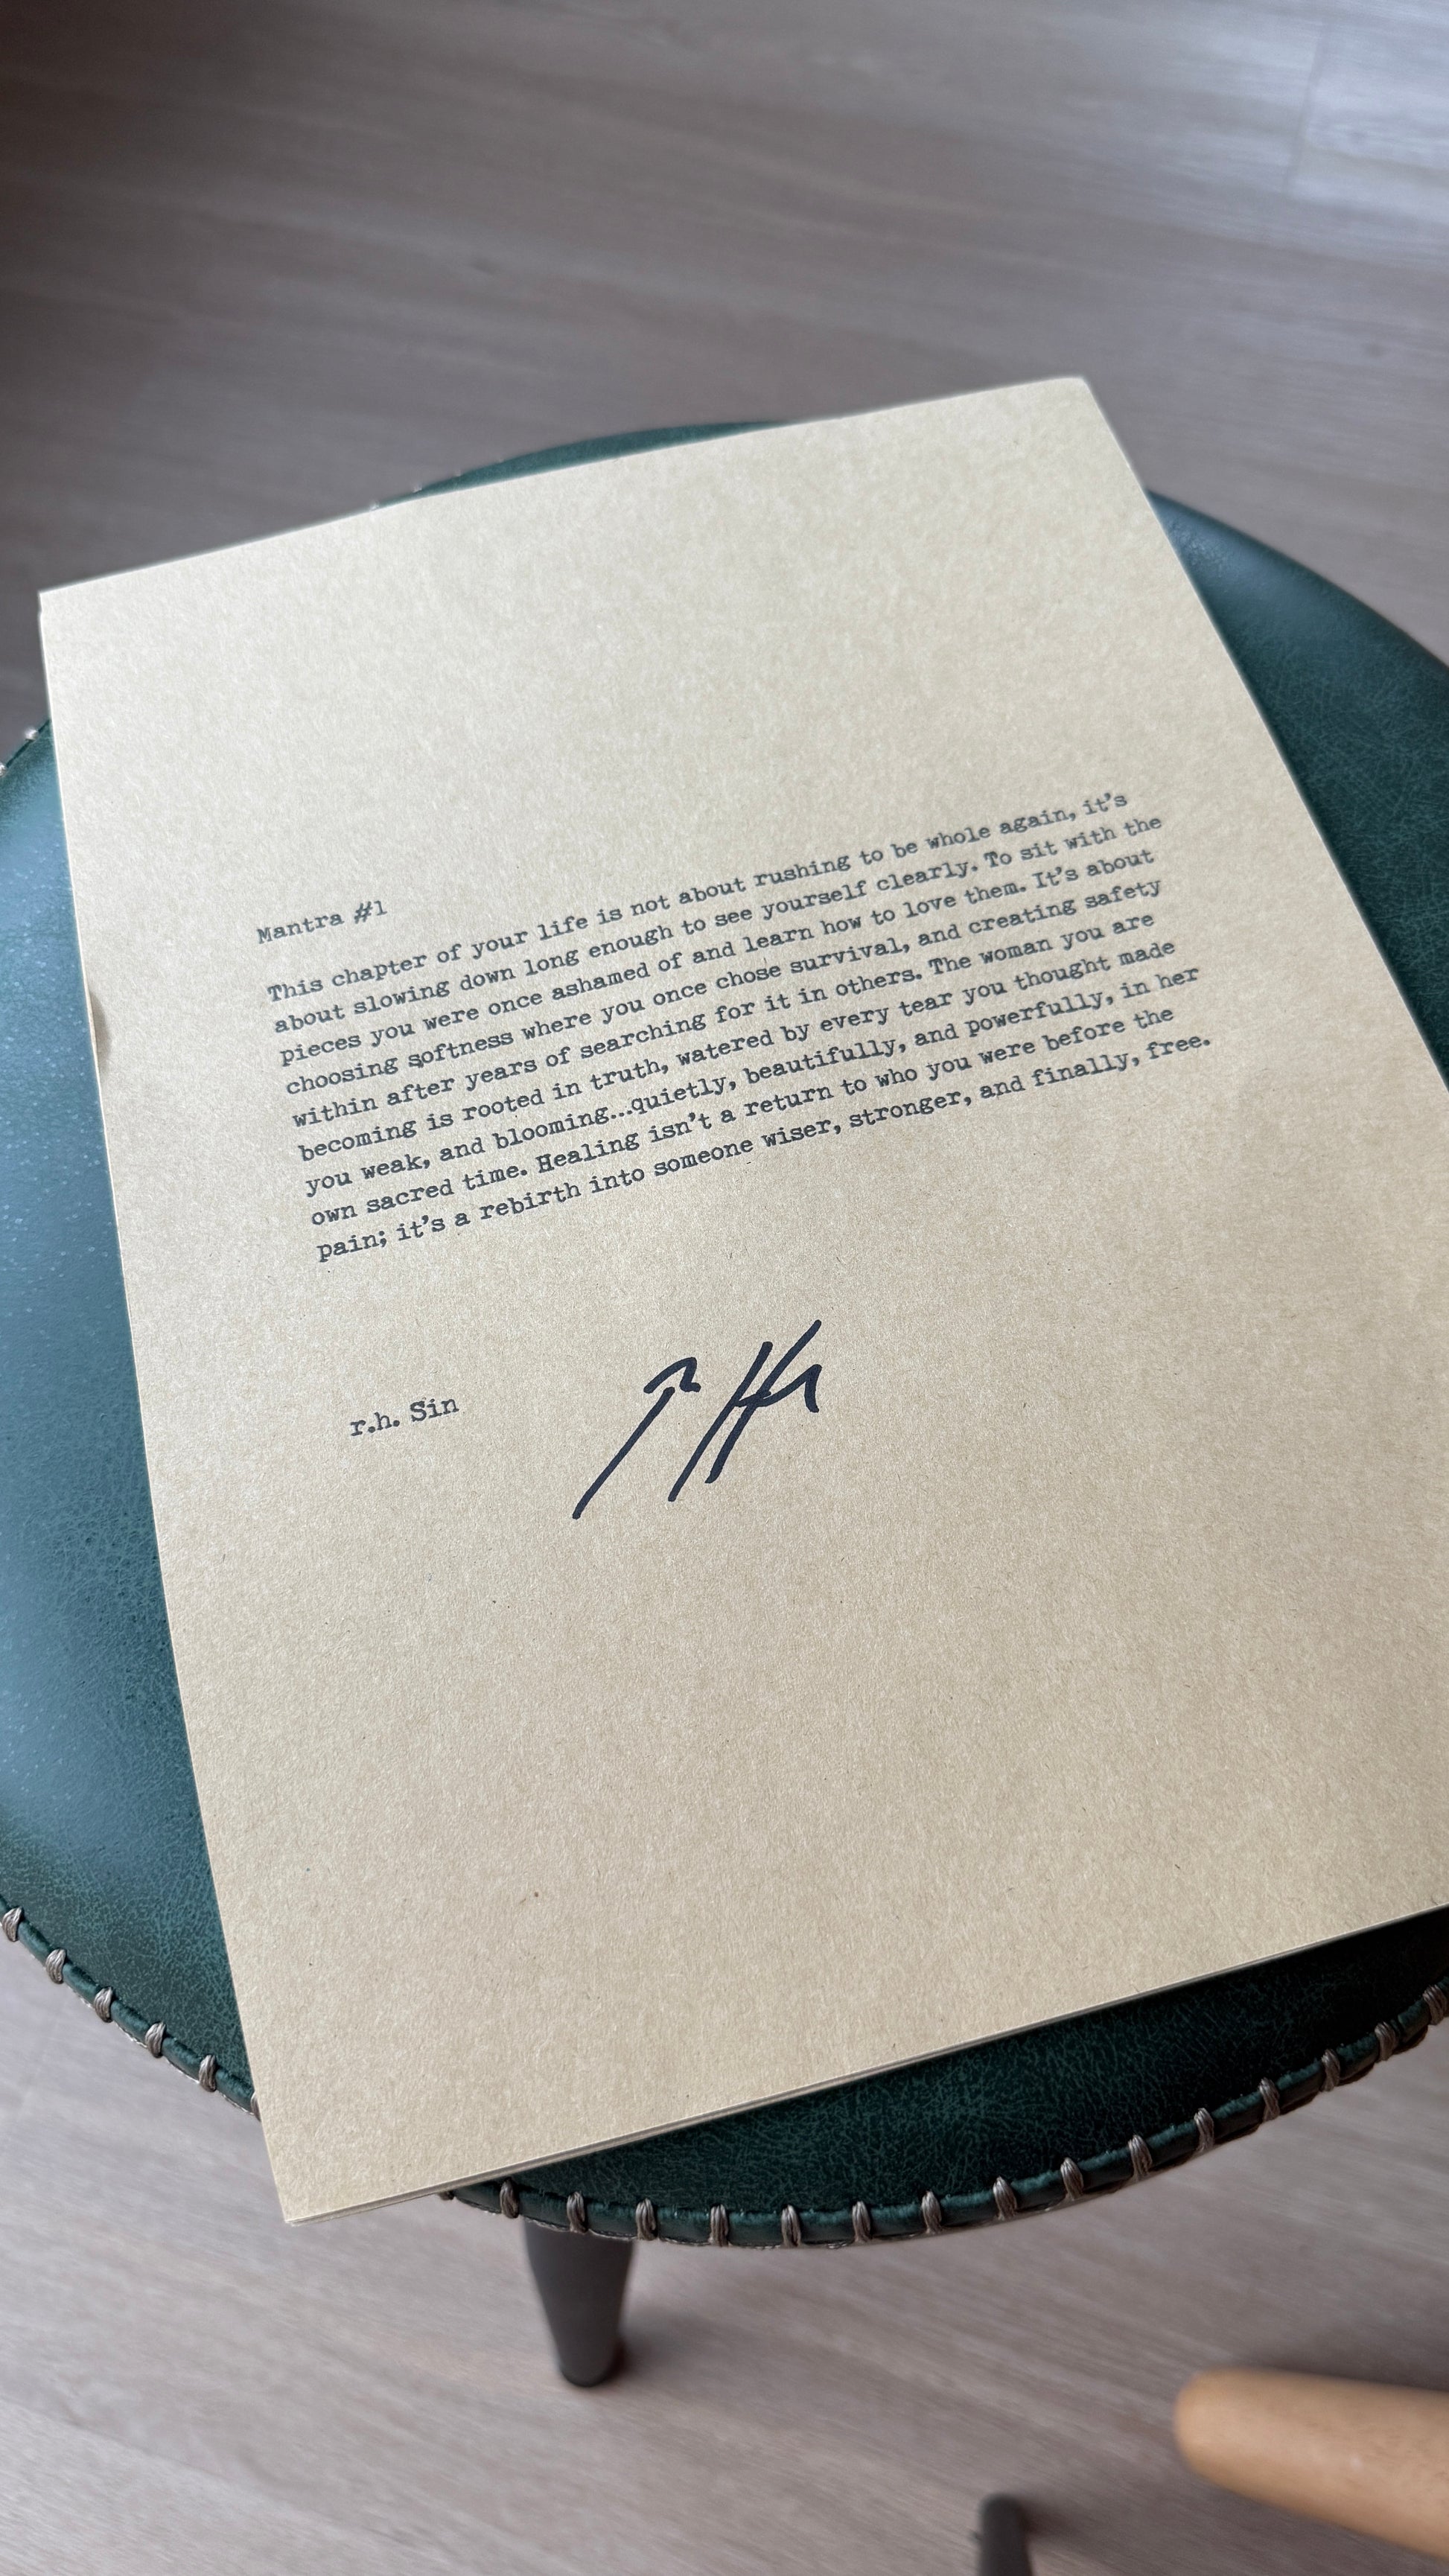 Mantra #1
This chapter of your life is not about rushing to be whole again, it's
about slowing down long enough to see yourself clearly. To sit with the
pieces you were once ashamed of and learn how to love them. It's about
choosing softness where you once chose survival, and creating safety
within after years of searching for it in others. The woman you are
becoming is rooted in truth, watered by every tear you thought made
you weak, and blooming...quietly, beautifully, and powerfully, in her
own sacred time. Healing isn't a return to who you were before the
pain; it's a rebirth into someone wiser, stronger, and finally, free.
r.h. Sin